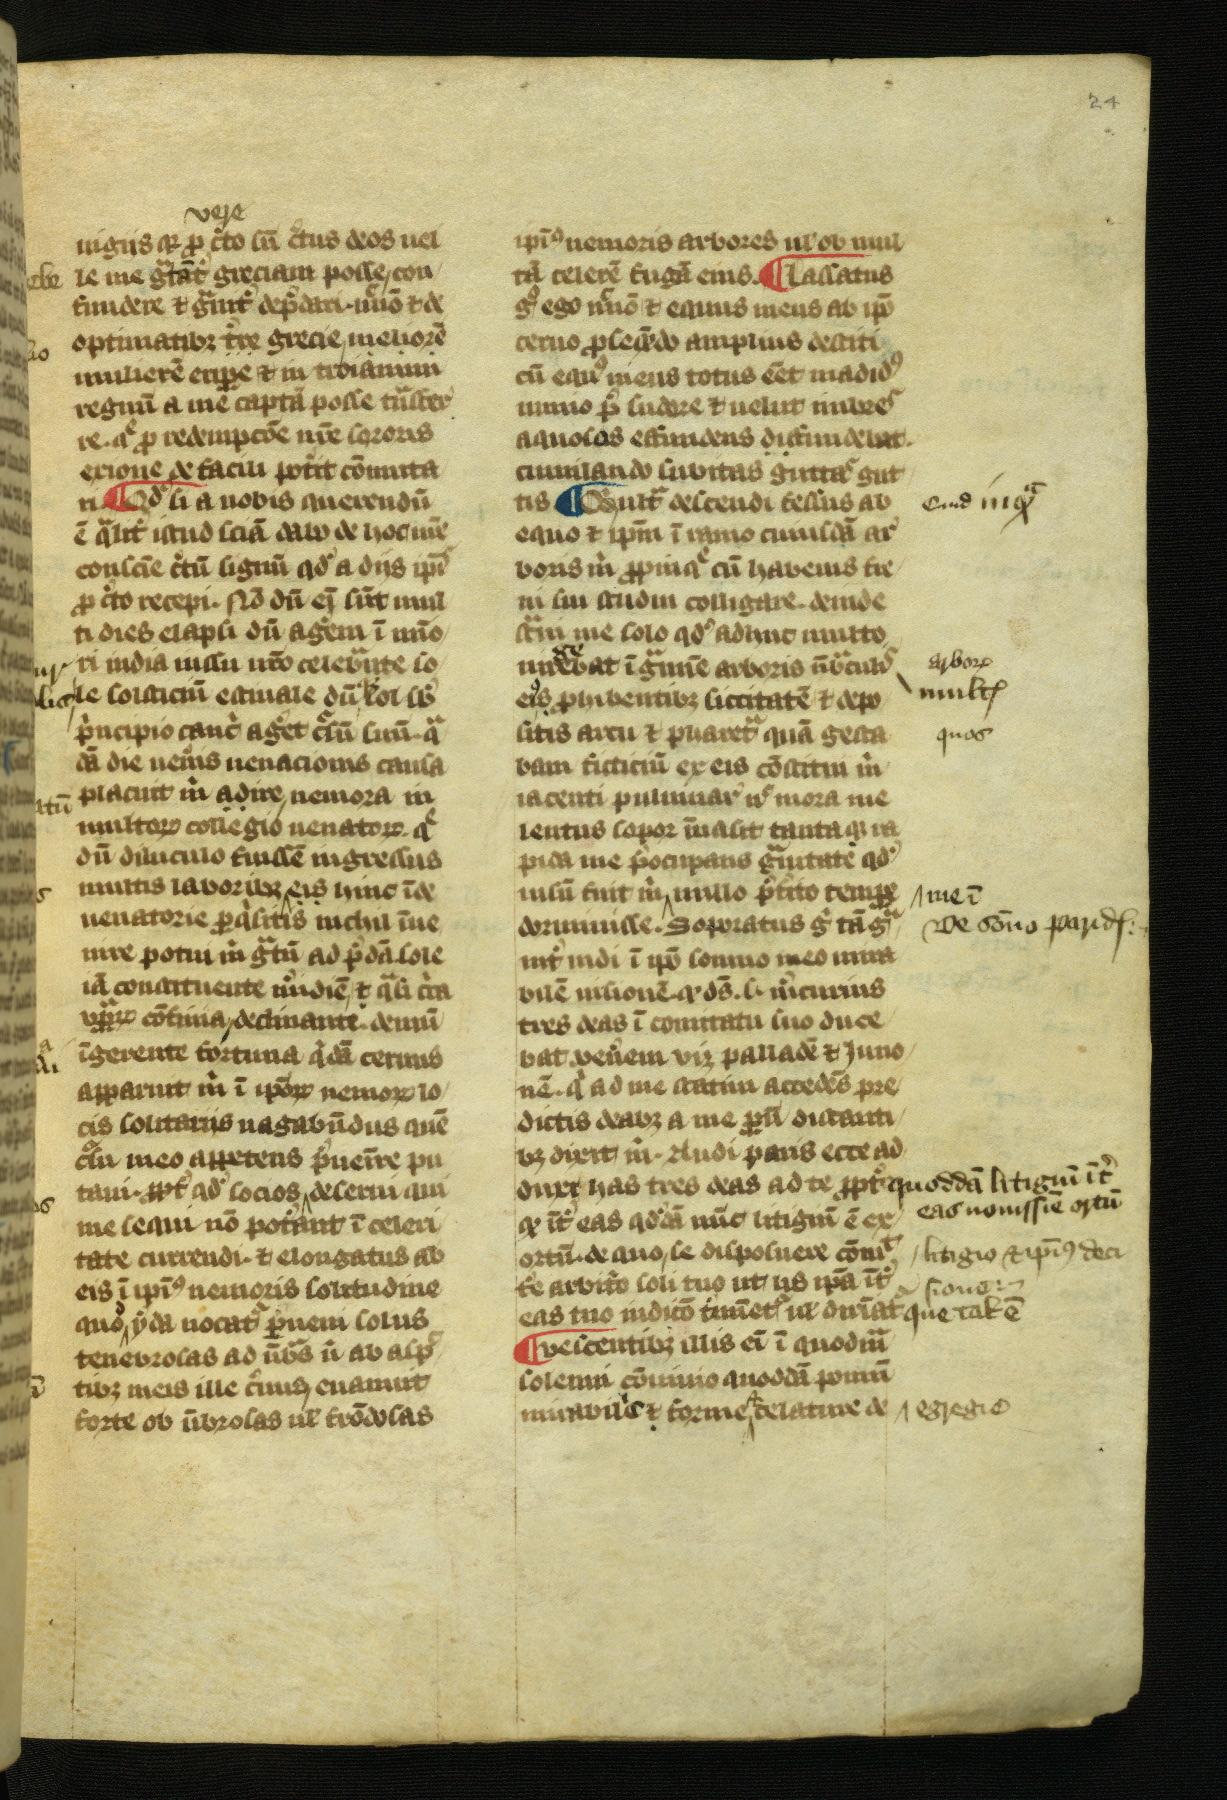 24
vere
uigiis qr ꝓ c̄to sū c̄tus deos uel
le me gͣtāt᷑ greciam posse con
fundere ⁊ gͣuit᷑ dep̄dari. īmo ⁊ de
optimatibꝫ tr̄re grecie meliorē
mulierē eripe ⁊ in troianum
regnū a me captā posse tn̄sfer
re. q̄ ꝓ redempcōe nr̄e sororis
exione de facili pot̄it cōmuta
ri ¶ Qd̓ si a nobis querendū
ē qͣlit᷑ istud sciā dabo de hoc me
consciē c̄tū signū qd̓ a diis ipīs
ꝓ c̄to recepi. Nō dū eī sūt mul
ti dies elapsi dū agēm ī mīo
ri india iussu nr̄o celebrante so
le solsticiū estiuale dū sol sb̓
p̓ncipio canc̓ aget c̓sū suū. qͣ
dā die uen̄is uenacionis causa
placuit m̓ adire nemora in
multoꝝ collegio uenatoꝝ. q̄
dū diluculo fuissē ingressus
multis laboribꝫ eis hinc īde
uenatorie ꝑq̓sitis nichil īue
nire potui m̓ gͣtū ad p̓dā sole
iā constituente m̓idiē ⁊ qͣsi c̓ca
uꝑaꝝ cōfinia declinante. demū
īgerente fortuna q̓dā ceruus
apparuit m̓ ī ip̄oꝝ nemoꝝ lo
cis solitariis uagabūdus quē
c̓su meo appetens p̓ueīre pu
taui. ꝓpt᷑ qd̓ socios deserui qui
me sequi nō pot̄ant ī celeri
tate currendi. ⁊ elongatus ab
eis ī ipi᷒ nemoris solitudine
quo yda uocat᷑ ꝑueni solus
tenebrosas ad ūbᷤs ū ab asp̄
tibꝫ meis ille c̓uus euanuit
forte ob ūbrosas ul̓ frōdosas
ipi᷒ nemoris arbores ul̓ ob mul
tā celerē fugā eius. ¶ Lassatus
g̓ ego īmo ⁊ equus meus ab ip̄o
ceruo ꝓseq̄ndo amplius destiti
cū equ᷒ meus totus eēt madid᷒
nimio p̓ sudore ⁊ uelut imbres
aquosos effundens diffundebat.
cumulando subitas guttas gut
tis ¶ Qͣ descendi fessus ab
equo ⁊ ipm̄ ī ramo cuiusdā ar
boris m̓ ꝓpinq̄ cū habenis fre
ni sui studui colligare. deinde
st̓ui me solo qd̓ adhuc multo
uirebat ī gͣmīe arboris ūbͣculis
eis ꝓhibentibꝫ siccitatē ⁊ depo
sitis arcu ⁊ pharetͣ quā gesta
bam ficticiū ex eis cōstitui m̓
iacenti puluinar n̄ mora me
lentus sopor īuasit tantaqꝫ ra
pida me p̄ocupans gͣuitate qd̓
uisū fuit m̓ nullo p̄t̓ito tempe
dormiuisse. Soporatus g̓ tā gͣ
uit᷑ uidi ī ip̄o sompno meo mira
bilē uisionē. qꝫ dꝰs .s. m̓curius
tres deas ī comitatu suo duce
bat ven̓em viꝫ palladē ⁊ Juno
nē. q̓ ad me statim accedēs pre
dictis deabꝫ a me ꝑū distanti
bꝫ dixit m̓. Audi paris ecce ad
duxi has tres deas ad te ꝓpt᷑
qꝫ īt᷑ eas qd̓dā nūc litigiū ē ex
ortū. de quo se disposuere cōmit
t᷑e arbit̓o soli tuo ut iis ip̄a īt᷑
eas tuo iudicō t̓miēt᷑ ul̓ diuīat᷑
¶ vescentibꝫ illis eī ī quodam
solemni cōuiuio quoddā pomū
mirabil̓ ⁊ forme ⁊ celature de
arborꝫ
multꝭ
quos
me ī
De sōno paridꝭ
quoddā litigiū īt᷑
eas nouissīe ortū
litigio ⁊ ipi᷒ deci
sione
que tal̓ ē
egregie